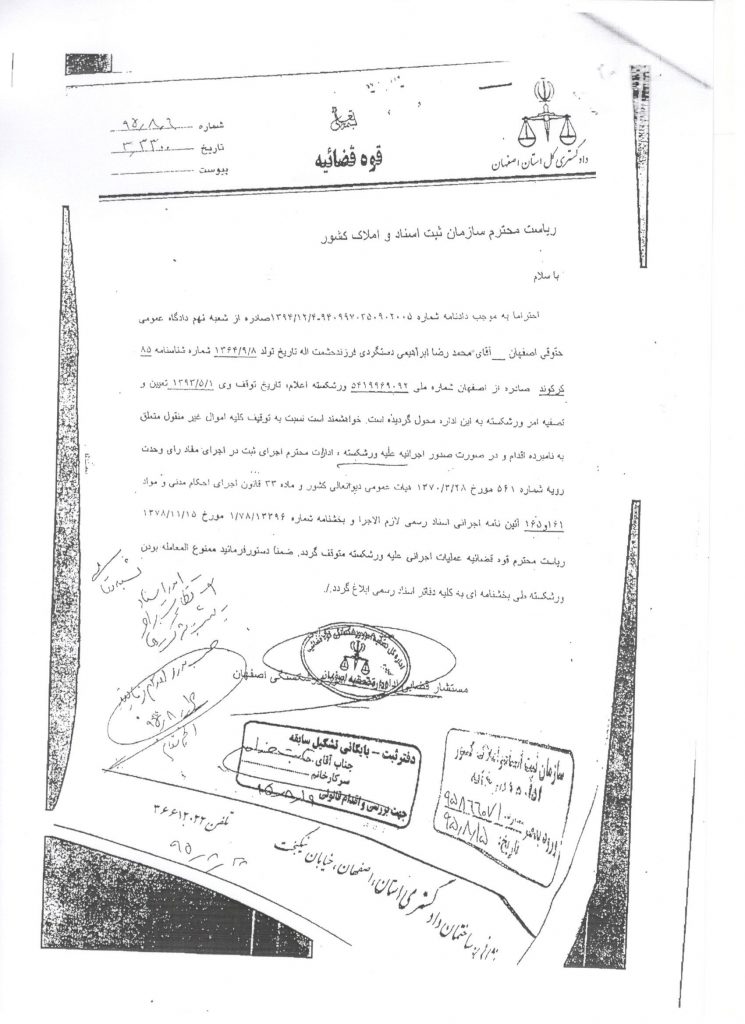 دادگستری کل استان اصفهان
قوه قضائیه
شماره ۹۵/۸/۶
تاریخ ۳,۳۳۰۰
پیوست
ریاست محترم سازمان ثبت اسناد و املاک کشور
با سلام
احتراما به موجب دادنامه شماره ۹۴۰۹۹۷۰۳۵۰۹۰۲۰۰۵-۱۳۹۴/۱۲/۴صادره از شعبه نهم دادگاه عمومی
حقوقی اصفهان آقای محمد رضا ابراهیمی دستگردی فرزندحشمت اله تاریخ تولد ۱۳۶۴/۹/۸ شماره شناسنامه ۸۵
کرکوند صادره از اصفهان شماره ملی ۵۴۱۹۹۶۹۰۹۲ ورشکسته اعلام، تاریخ توقف وی ۱۳۹۳/۵/۱ تعیین و
تصفیه امر ورشکسته به این اداره محول گردیده است. خواهشمند است نسبت به توقیف کلیه اموال غیر منقول متعلق
به نامبرده اقدام و در صورت صدور اجرائیه علیه ورشکسته ، ادارات محترم اجرای ثبت در اجرای مفاد رای وحدت
رویه شماره ۵۶۱ مورخ ۱۳۷۰/۳/۲۸ هیات عمومی دیوانعالی کشور و ماده ۳۳ قانون اجرای احکام مدنی و مواد
۱۶۱و۱۶۵ آئین نامه اجرائی اسناد رسمی لازم الاجرا و بخشنامه شماره ۱/۷۸/۱۳۳۹۶ مورخ ۱۳۷۸/۱۱/۱۵
ریاست محترم قوه قضائیه عملیات اجرائی علیه ورشکسته متوقف گردد. ضمناً دستورفرمائید ممنوع المعامله بودن
ورشکسته طی بخشنامه ای به کلیه دفاتر اسناد رسمی ابلاغ گردد./
مستشار قضایی اداره تصفیه امور ورشکستگی اصفهان
دفتر ثبت - بایگانی تشکیل سابقه
جناب آقای
سرکارخانم
جهت بررسی و اقدام قانونی
سازمان ثبت اسناد و املاک کشور
۹۵۸۶۶۰۷۱
تاریخ: ۹۵/۸/۱۵
تلفن ۳۶۶۱۲۰۲۲
ساختمان دادگستری استان، اصفهان، خیابان نیکبخت